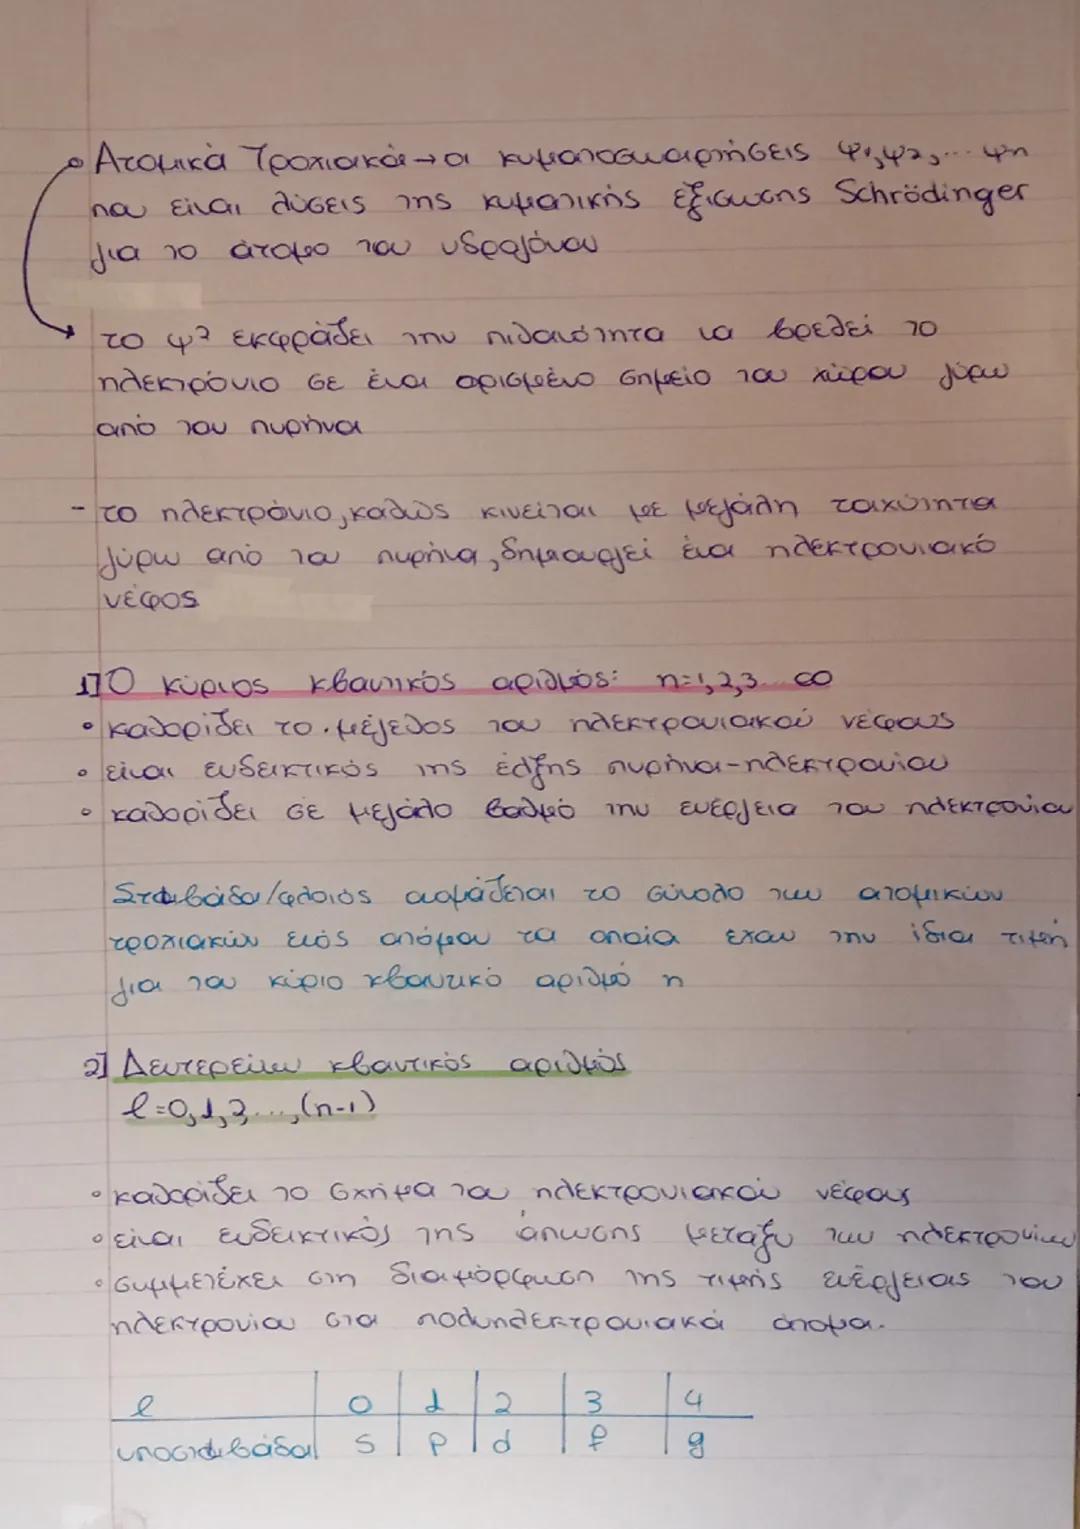 • Ατομικά Τροχιακά → οι κυματοσυναρτήσεις ψ1, ψ2, ... ψn
που είναι λύσεις της κυματικής εξίσωσης Schrödinger
για το άτομο του υδρογόνου
το ψ² εκφράζει την πιθανότητα να βρεθεί το
ηλεκτρόνιο σε ένα ορισμένο σημείο του χώρου γύρω
από τον πυρήνα
- το ηλεκτρόνιο, καθώς κινείται με μεγάλη ταχύτητα
γύρω από τον πυρήνα, δημιουργεί ένα ηλεκτρονιακό
νέφος
1] Ο κύριος κβαντικός αριθμός: n=1,2,3... ∞
• καθορίζει το μέγεθος του ηλεκτρονιακού νέφους
• είναι ενδεικτικός της έλξης πυρήνα-ηλεκτρονίου
• καθορίζει σε μεγάλο βαθμό την ενέργεια του ηλεκτρονίου
Στιβάδα/φλοιός ονομάζεται το σύνολο των ατομικών
τροχιακών ενός ατόμου τα οποία έχουν την ίδια τιμή
για τον κύριο κβαντικό αριθμό n
2] Δευτερεύων κβαντικός αριθμός
l=0,1,2...,(n-1)
• καθορίζει το σχήμα του ηλεκτρονιακού νέφους
• είναι ενδεικτικός της άπωσης μεταξύ των ηλεκτρονίων
• συμμετέχει στη διαμόρφωση της τιμής ενέργειας του
ηλεκτρονίου στα πολυηλεκτρονιακά άτομα.
l 0 1 2 3 4
υποστιβάδα s p d f g